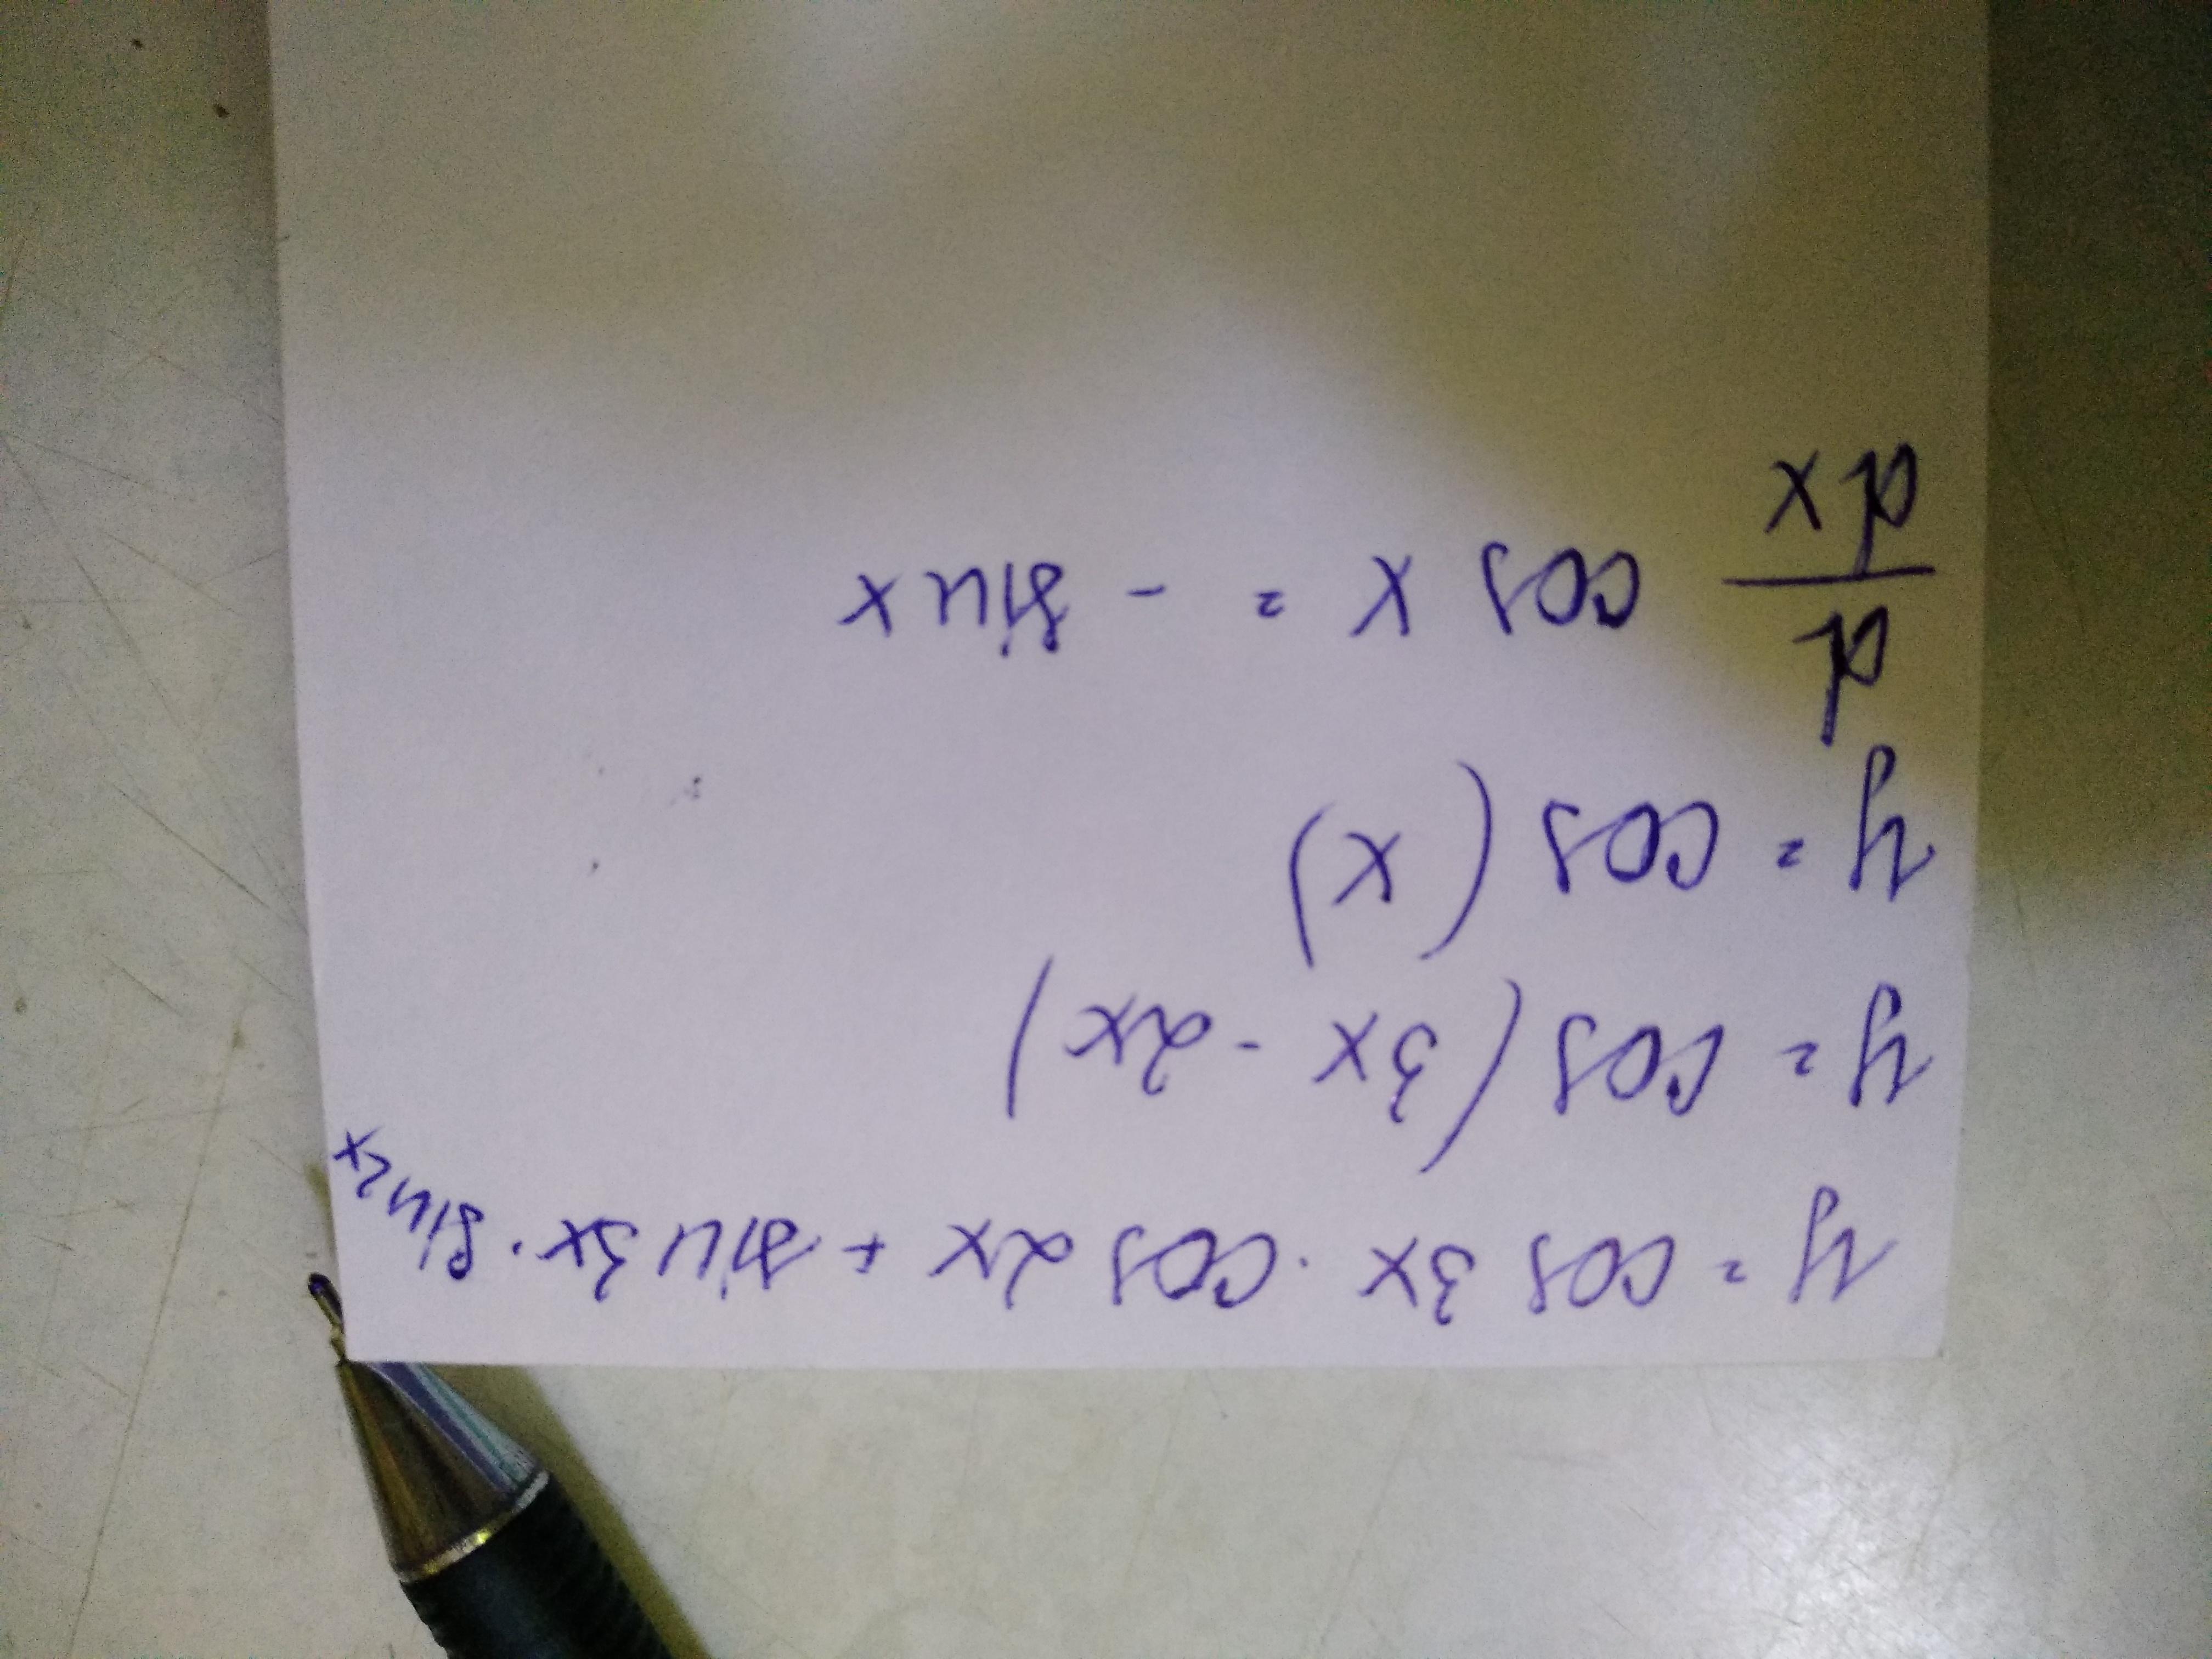 y = cos 3x . cos 2x + sin 3x . sin 2x
y = cos (3x - 2x)
y = cos (x)
d/dx cos x = - sin x